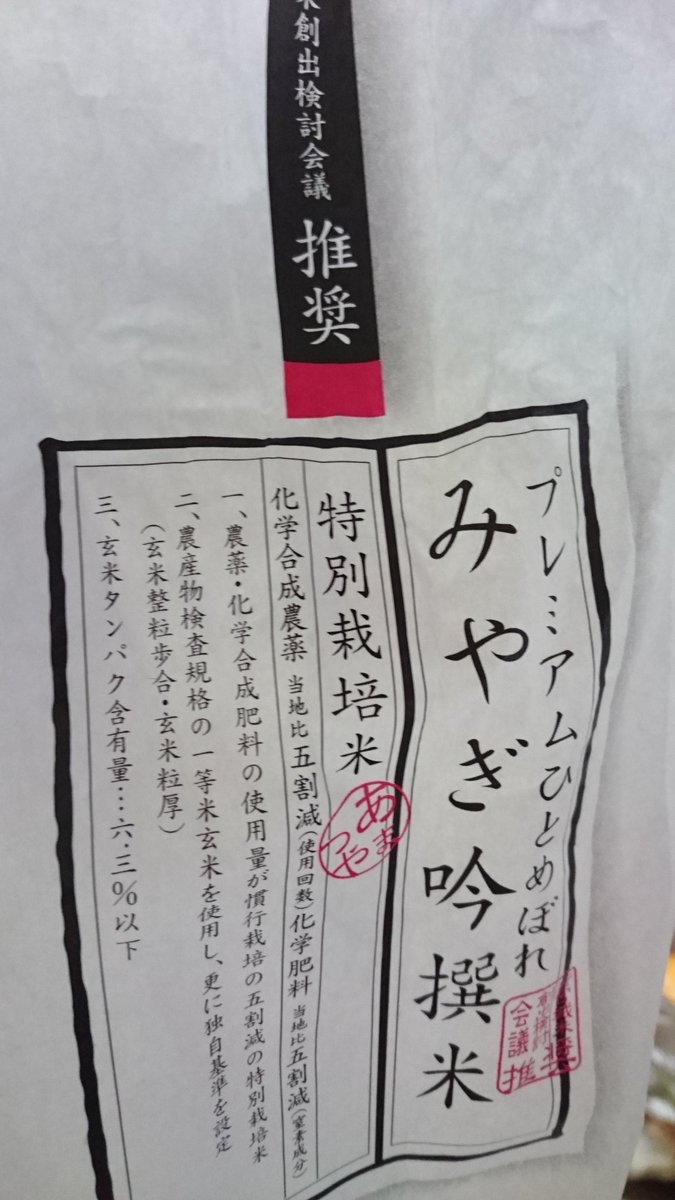 創出検討会議 推奨
プレミアムひとめぼれ
みやぎ吟撰米
会議
推奨
特別栽培米
あまつや
化学合成農薬 当地比 五割減(使用回数)化学肥料 当地比 五割減(窒素成分)
一、農薬・化学合成肥料の使用量が慣行栽培の五割減の特別栽培米
二、農産物検査規格の一等米玄米を使用し、更に独自基準を設定
(玄米整粒歩合・玄米粒厚)
三、玄米タンパク含有量…六・三%以下